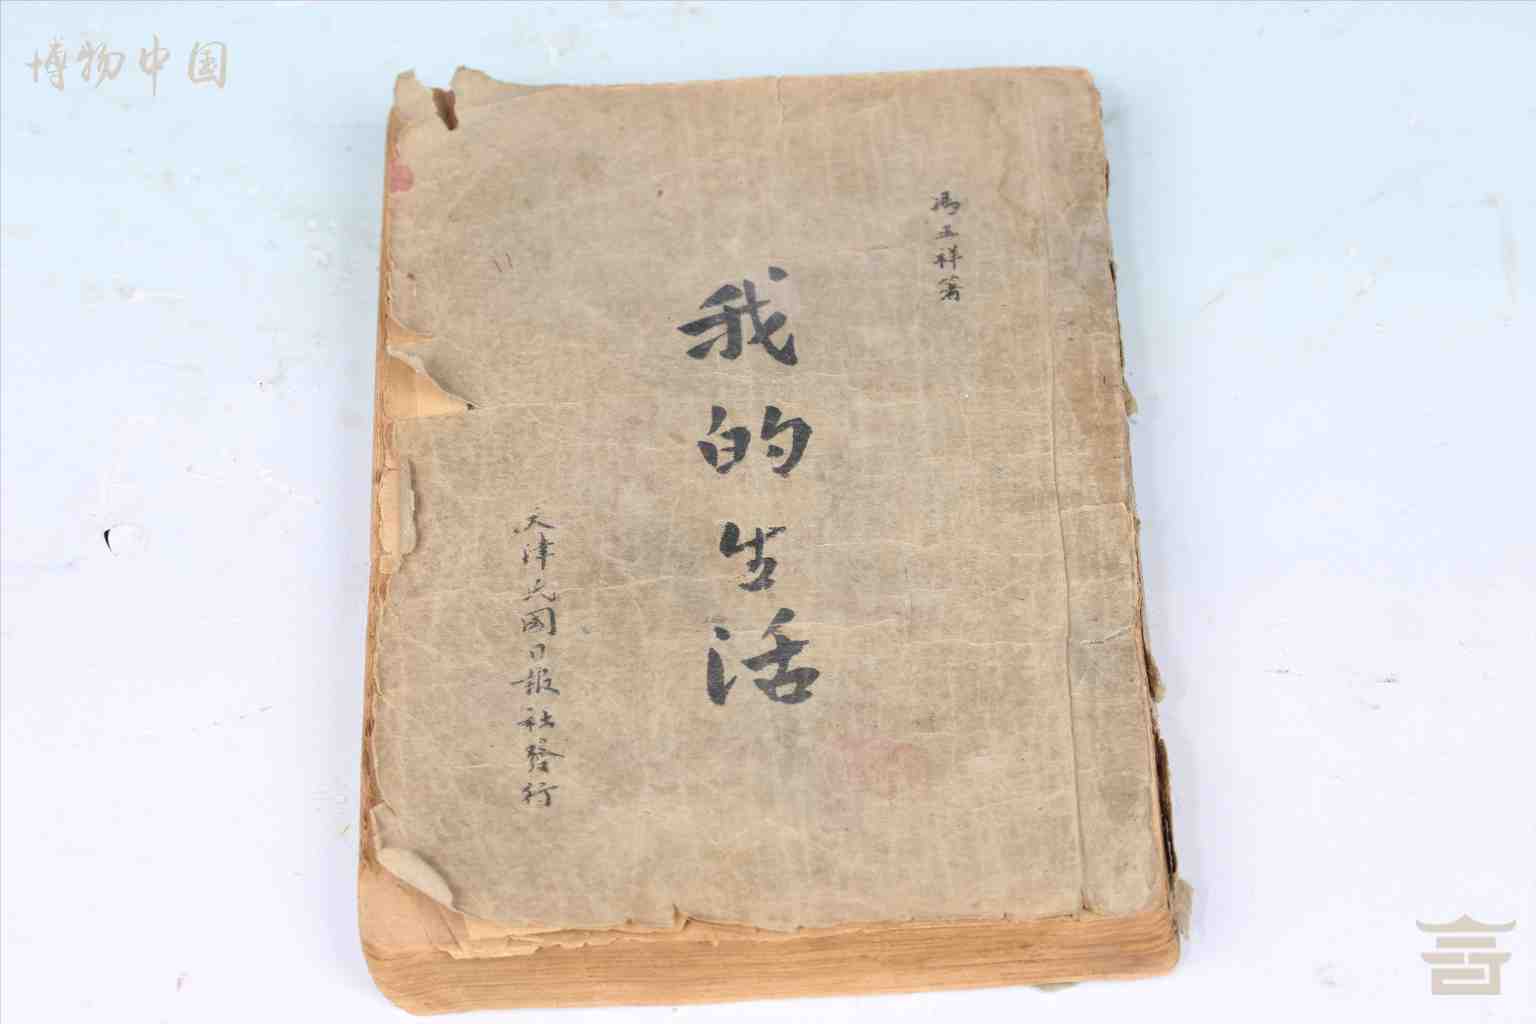 博物中国
馮玉祥著
我的生活
天津民國日報社發行